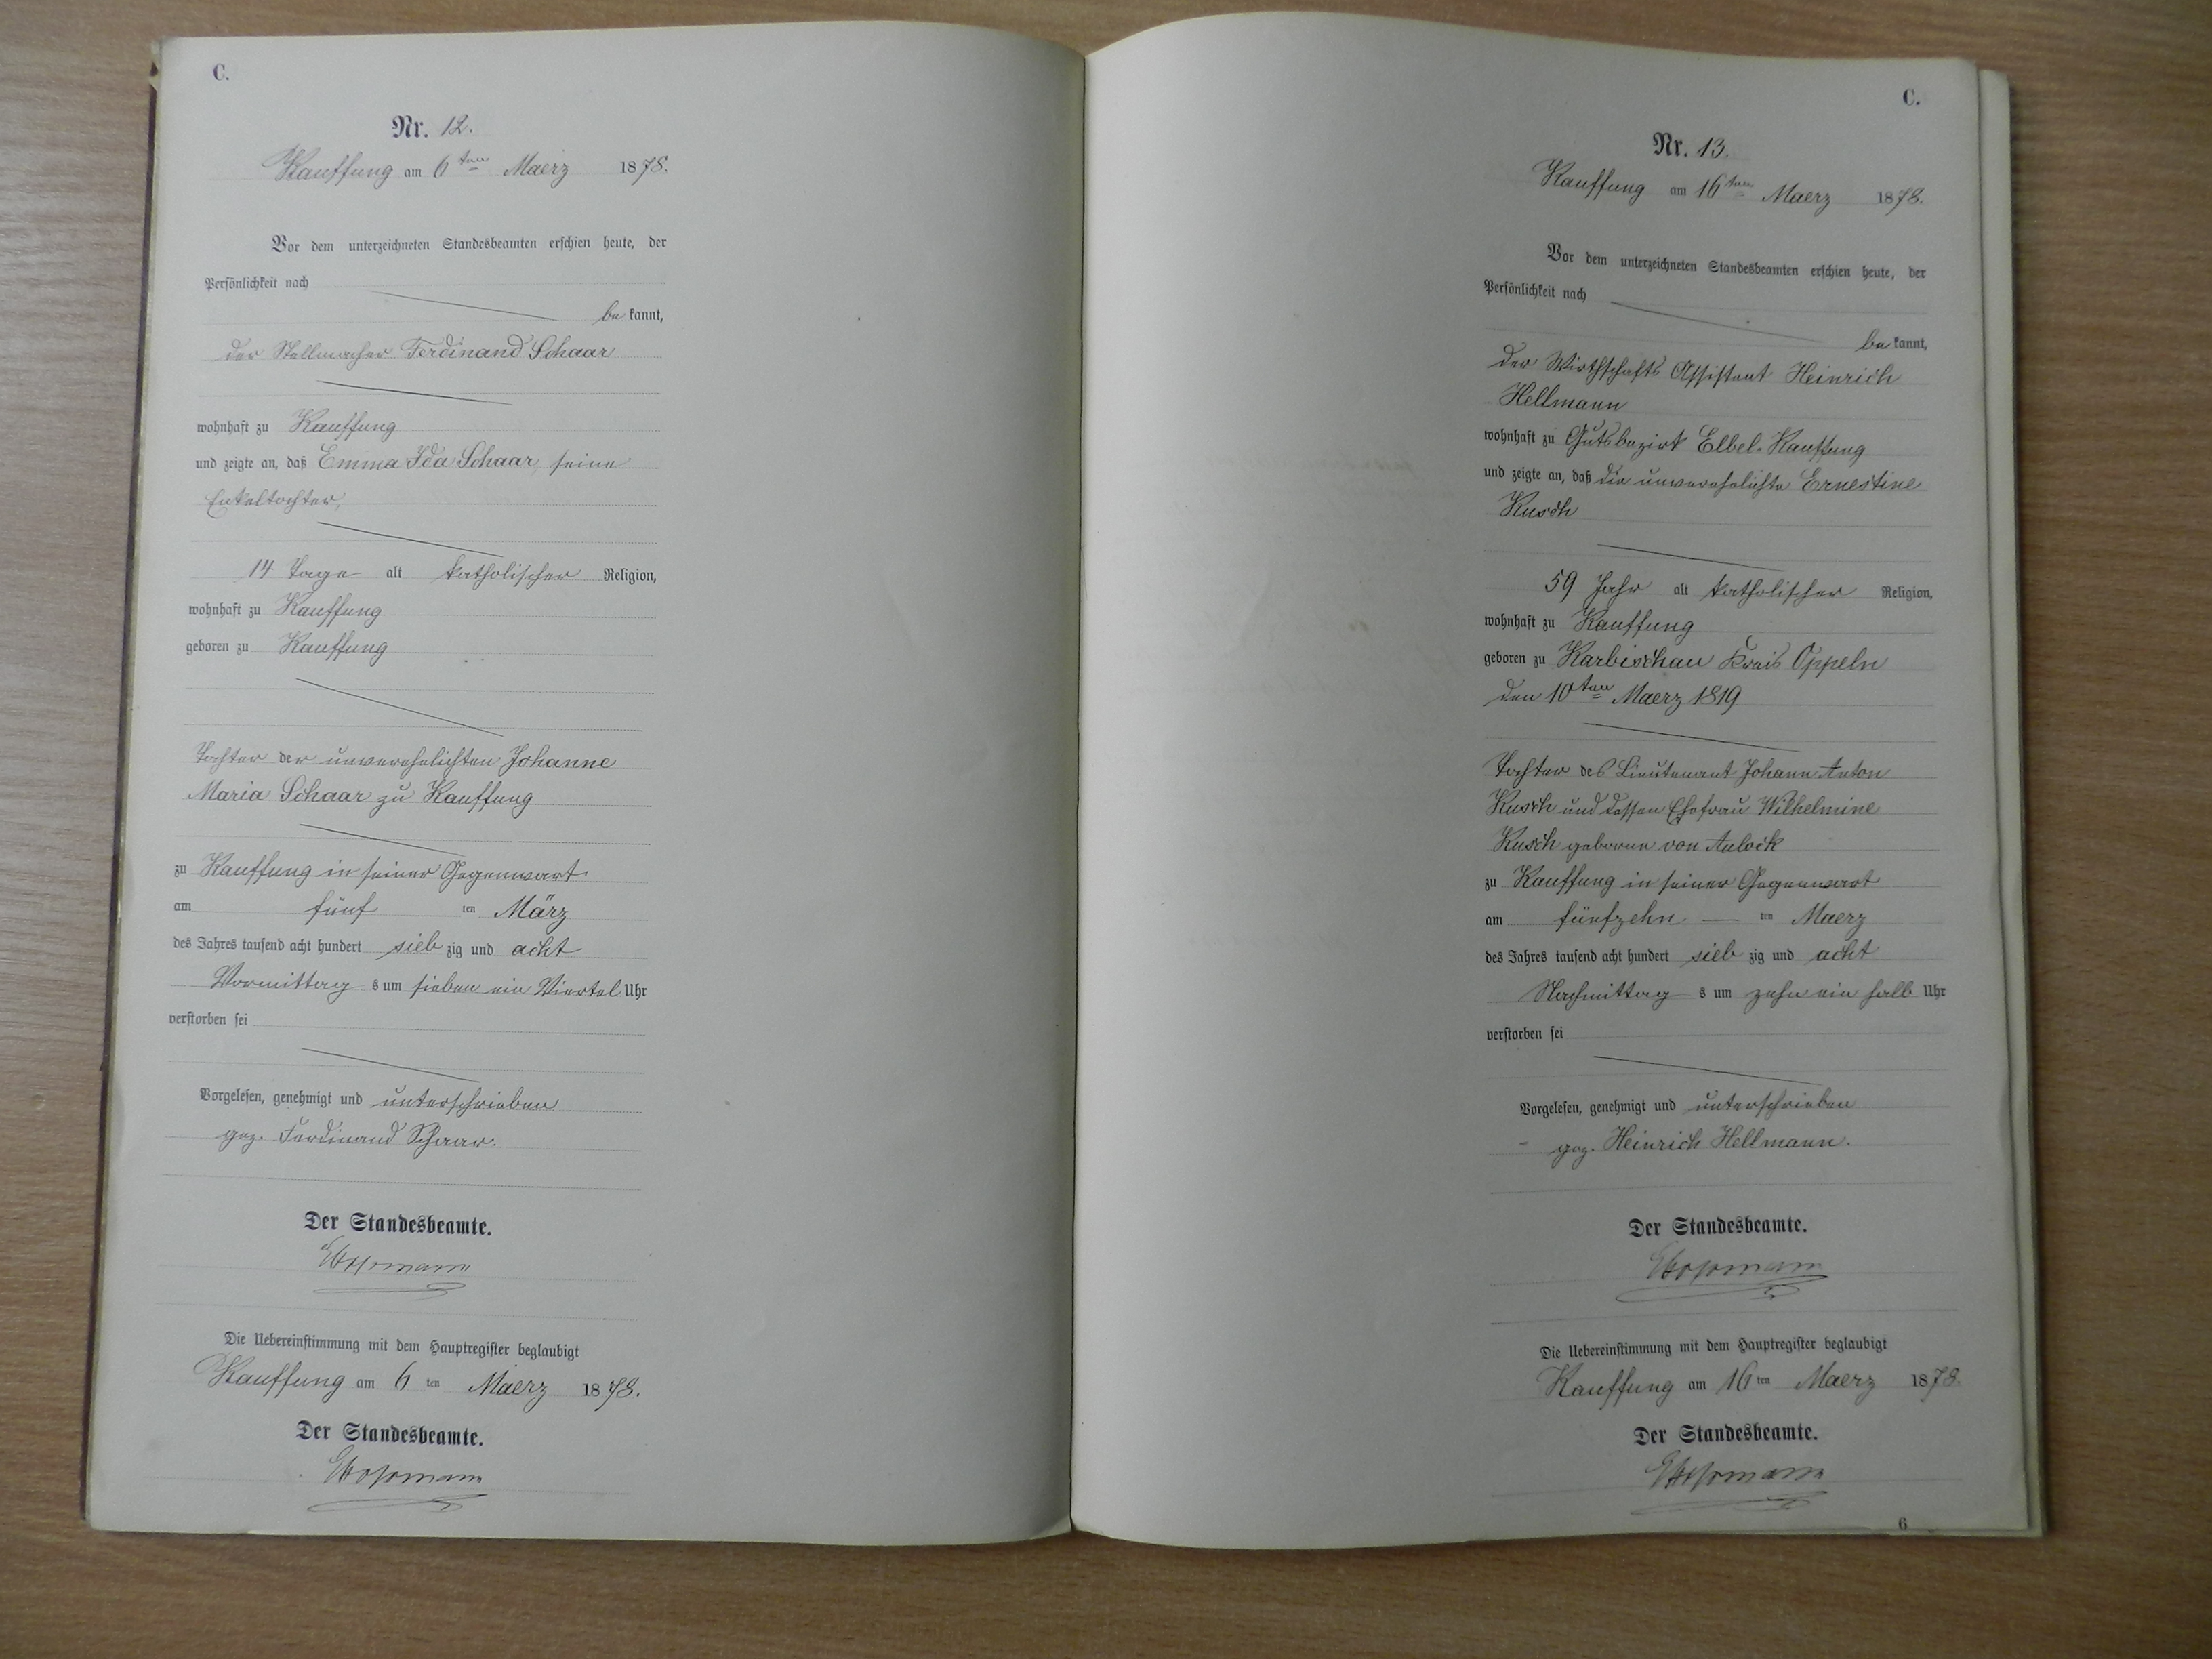 C.
Nr. 12.
Kauffung am 6ten Maerz 1878.
Vor dem unterzeichneten Standesbeamten erschien heute, der
Persönlichkeit nach
be kannt,
der Stellmacher Ferdinand Schaar
wohnhaft zu Kauffung
und zeigte an, daß Emma Ida Schaar, seine
Enkeltochter,
14 Tage alt katholischer Religion,
wohnhaft zu Kauffung
geboren zu Kauffung
Tochter der unverehelichten Johanne
Maria Schaar zu Kauffung
zu Kauffung in seiner Gegenwart
am fünf ten März
des Jahres tausend acht hundert sieb zig und acht
Vormittag s um sieben ein Viertel Uhr
verstorben sei
Vorgelesen, genehmigt und unterschrieben
gez. Ferdinand Schaar.
Der Standesbeamte.
Die Uebereinstimmung mit dem Hauptregister beglaubigt
Kauffung am 6 ten Maerz 1878.
Der Standesbeamte.
C.
Nr. 13.
Kauffung am 16ten Maerz 1878.
Vor dem unterzeichneten Standesbeamten erschien heute, der
Persönlichkeit nach
be kannt,
der Wirthschafts Assistent Heinrich
Hellmann
wohnhaft zu Gutsbezirk Elbel-Kauffung
und zeigte an, daß die unverehelichte Ernestine
Kusch
59 Jahr alt katholischer Religion,
wohnhaft zu Kauffung
geboren zu Karbischau Kreis Oppeln
den 10ten Maerz 1819
Tochter des Lieutenant Johann Anton
Kusch und dessen Ehefrau Wilhelmine
Kusch geborene von Aulock
zu Kauffung in seiner Gegenwart
am fünfzehn — ten Maerz
des Jahres tausend acht hundert sieb zig und acht
Nachmittag s um zehn ein halb Uhr
verstorben sei
Vorgelesen, genehmigt und unterschrieben
gez. Heinrich Hellmann.
Der Standesbeamte.
Die Uebereinstimmung mit dem Hauptregister beglaubigt
Kauffung am 16 ten Maerz 1878.
Der Standesbeamte.
6